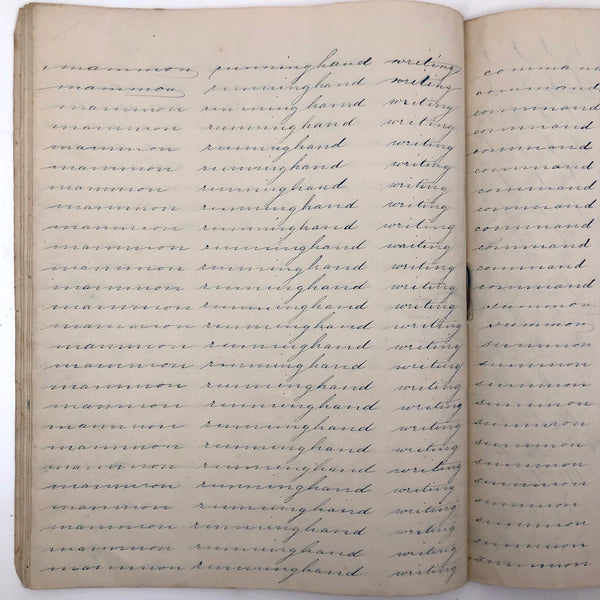 mammon runninghand writing
mammon runninghand writing
mammon runninghand writing
mammon runninghand writing
mammon runninghand writing
mammon runninghand writing
mammon runninghand writing
mammon runninghand writing
mammon runninghand writing
mammon runninghand writing
mammon runninghand writing
mammon runninghand writing
mammon runninghand writing
mammon runninghand writing
mammon runninghand writing
mammon runninghand writing
mammon runninghand writing
mammon runninghand writing
mammon runninghand writing
mammon runninghand writing
mammon runninghand writing
mammon runninghand writing
mammon runninghand writing
mammon runninghand writing
mammon runninghand writing
mammon runninghand writing
comman
command
command
command
command
command
command
command
command
command
command
command
summon
summon
summon
summon
summon
summon
summon
summon
summon
summon
summon
summon
summon
summon